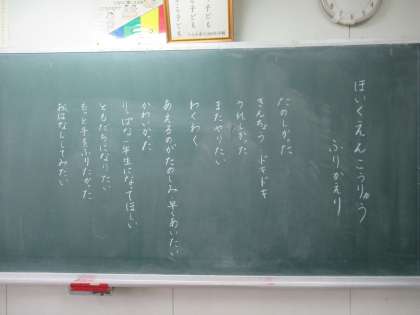 ほいくえんこうりゅう
ふりかえり
たのしかった
きんちょう ドキドキ
うれしかった
またやりたい
わくわく
あえるのがたのしみ 早くあいたい
かわいかった
りっぱな一年生になってほしい
ともだちになりたい
もっと手をふりたかった
おはなししてみたい